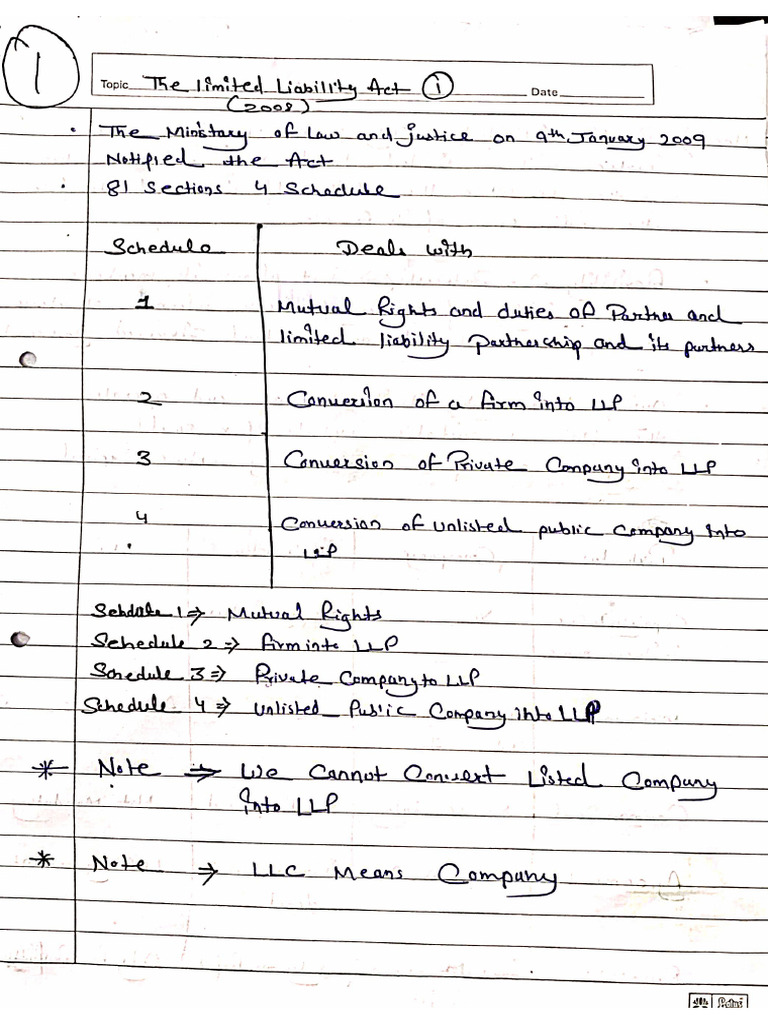 1
Topic The Limited Liability Act ① Date
(2008)
• The Ministary of Law and justice on 9th January 2009
Notified the Act
• 81 Sections 4 Schedule
Schedule Deals with
1 Mutual Rights and duties of Partner and
limited liability partnership and its partners
2 Conversion of a firm into LLP
3 Conversion of Private Company into LLP
4 Conversion of unlisted public Company into
LLP
Schdule 1 ⇒ Mutual Rights
Schedule 2 ⇒ firm into LLP
Schedule 3 ⇒ Private Company to LLP
Schedule 4 ⇒ Unlisted Public Company into LLP
* Note ⇒ We Cannot Convert Listed Company
into LLP
* Note ⇒ LLC Means Company